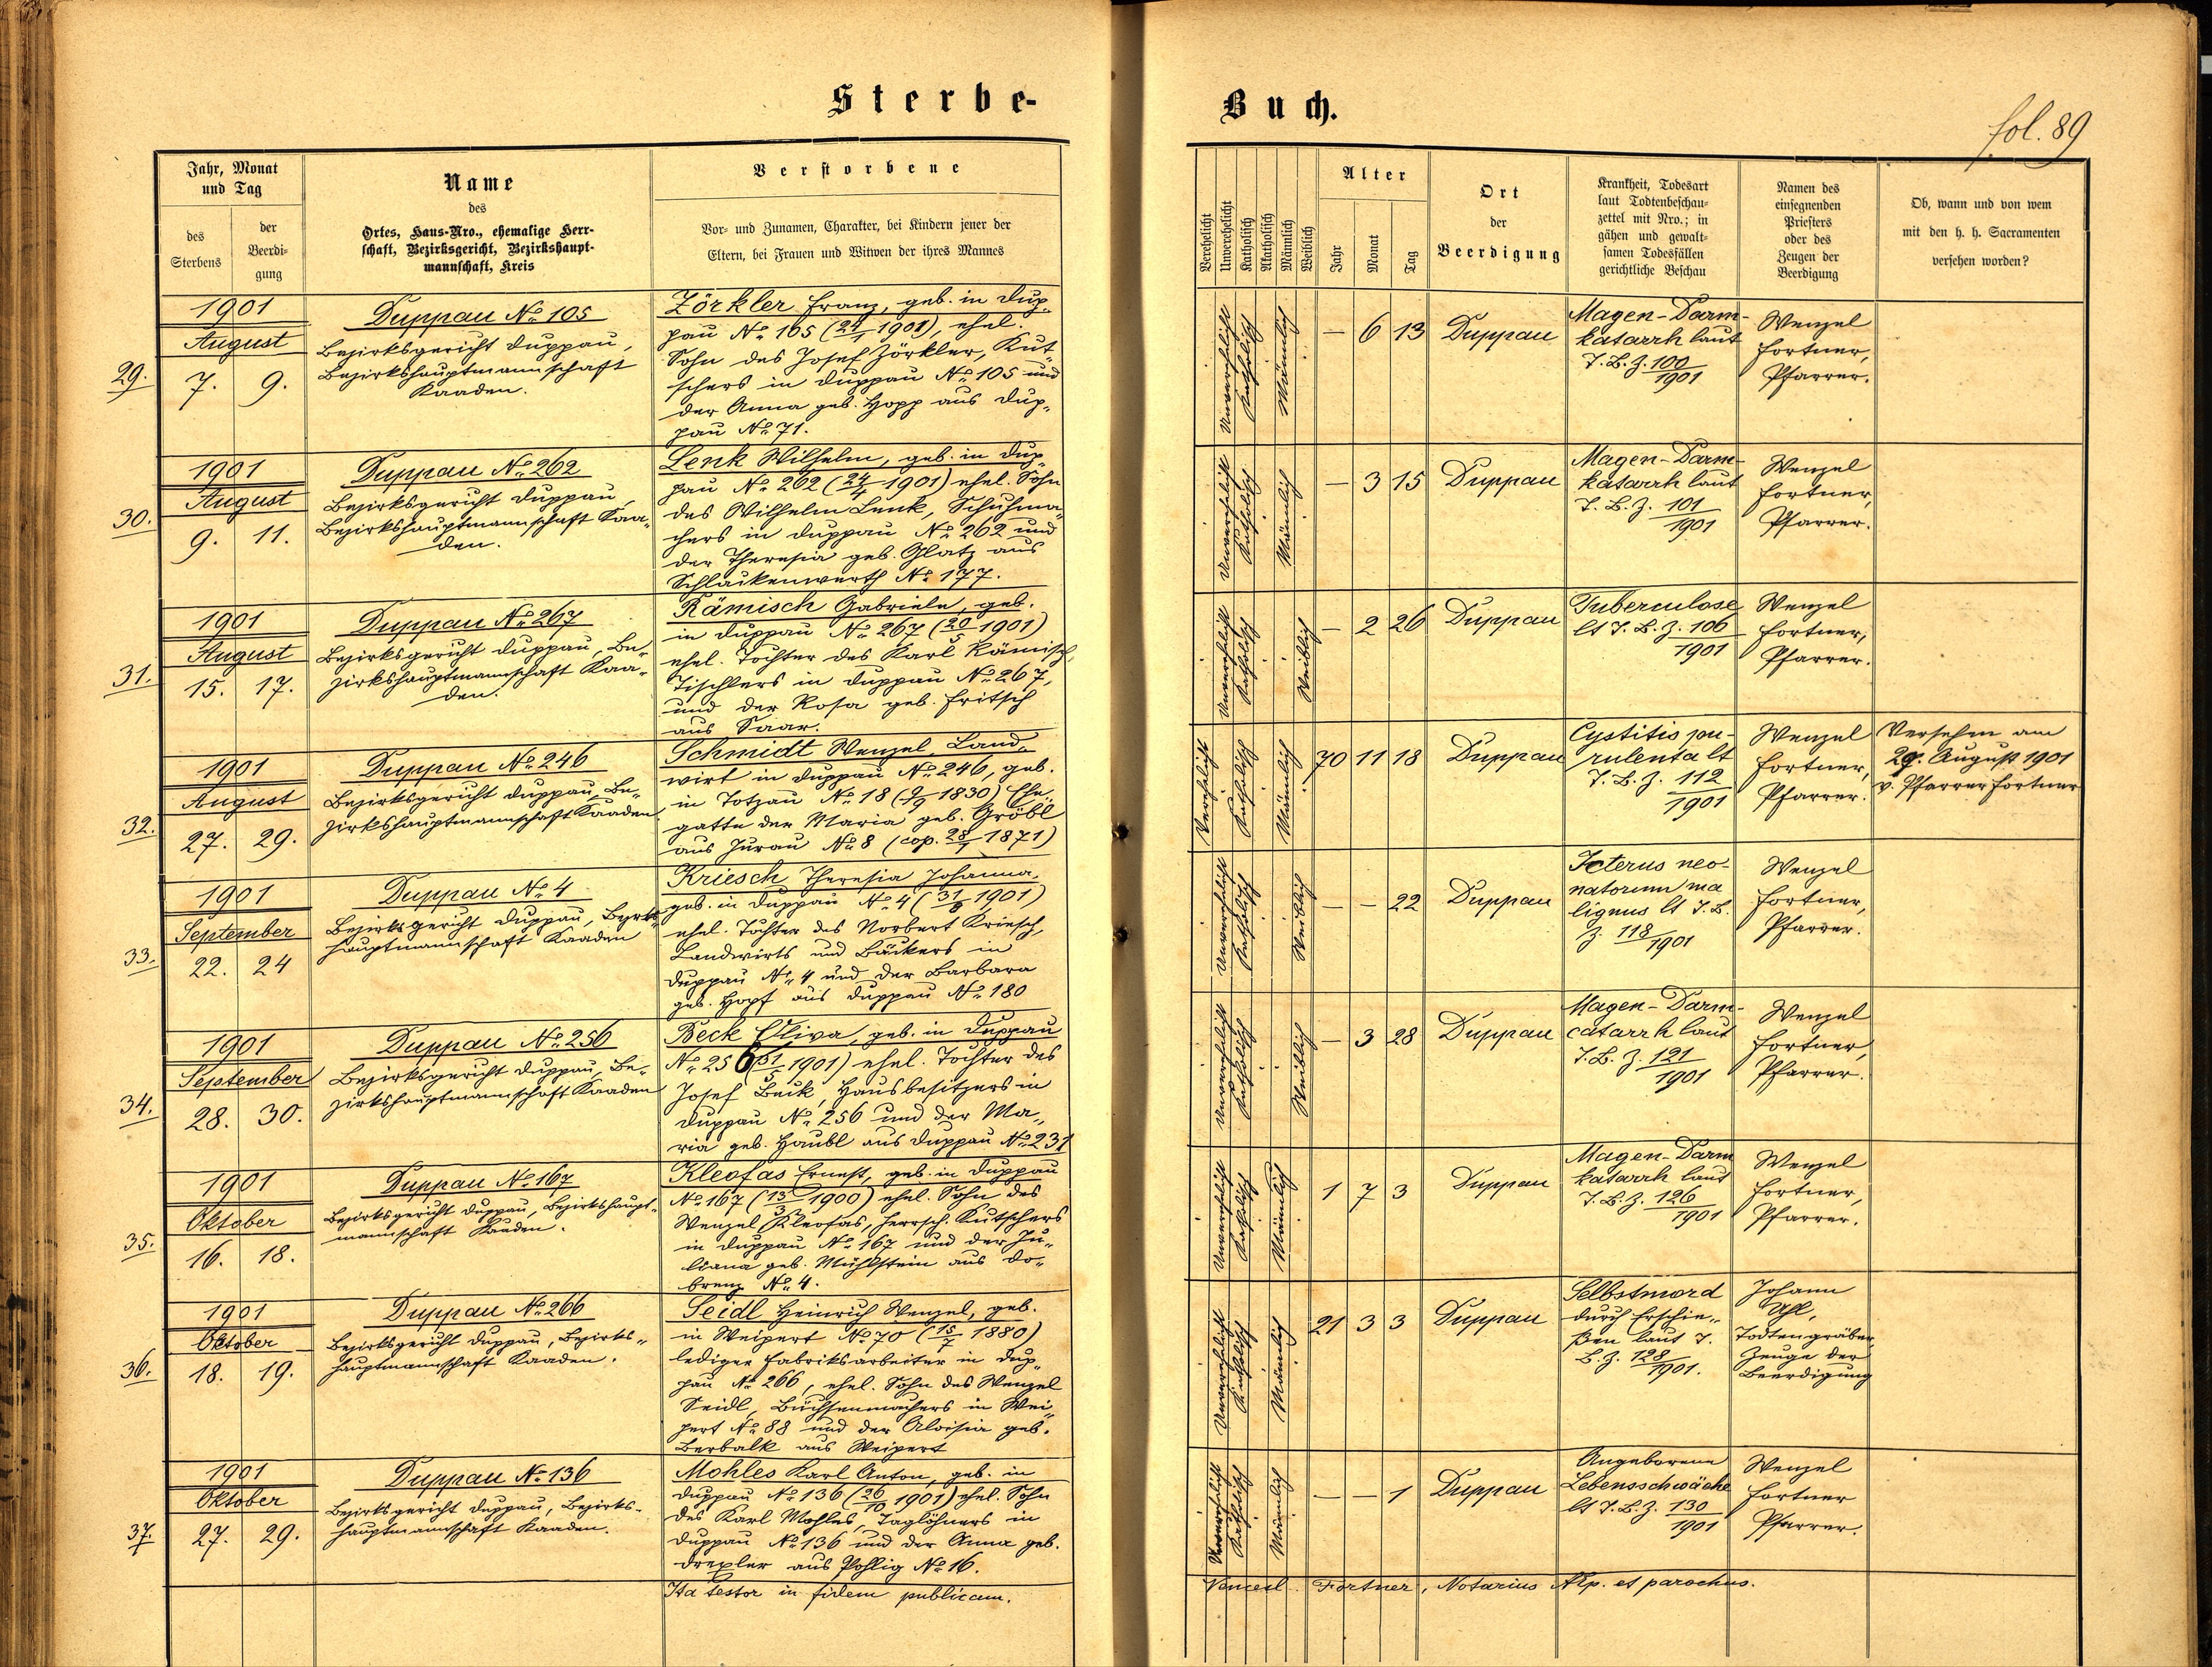 Sterbe-
Buch.
fol. 89
Jahr, Monat
und Tag
des
Sterbens
der
Beerdi-
gung
Name
des
Ortes, Haus-Nro., ehemalige Herr-
schaft, Bezirksgericht, Bezirkshaupt-
mannschaft, Kreis
Verstorbene
Vor- und Zunamen, Charakter, bei Kindern jener der
Eltern, bei Frauen und Witwen der ihres Mannes
Verehelicht
Unverehelicht
Katholisch
Akatholisch
Männlich
Weiblich
Alter
Jahr
Monat
Tag
Ort
der
Beerdigung
Krankheit, Todesart
laut Todtenbeschau-
zettel mit Nro.; in
gähen und gewalt-
samen Todesfällen
gerichtliche Beschau
Namen des
einsegnenden
Priesters
oder des
Zeugen der
Beerdigung
Ob, wann und von wem
mit den h. h. Sacramenten
versehen worden?
29.
1901
August
7. 9.
Duppau No 105
Bezirksgericht Duppau,
Bezirkshauptmannschaft
Kaaden.
Zörkler Franz, geb. in Dup-
pau No 105 (24/1 1901), ehel.
Sohn des Josef Zörkler, Kut-
schers in Duppau No 105 und
der Anna geb. Hopp aus Dup-
pau No 71.
Unverehelicht
Katholisch
Männlich
— 6 13
Duppau
Magen-Darm-
katarrh laut
T. B. Z. 100/1901
Wenzel
Fortner,
Pfarrer.
30.
1901
August
9. 11.
Duppau No 262
Bezirksgericht Duppau,
Bezirkshauptmannschaft Kaa-
den.
Lenk Wilhelm, geb. in Dup-
pau No 262 (24/4 1901) ehel. Sohn
des Wilhelm Lenk, Schuhma-
chers in Duppau No 262 und
der Theresia geb. Glatz aus
Schlackenwerth No 177.
Unverehelicht
Katholisch
Männlich
— 3 15
Duppau
Magen-Darm-
katarrh laut
T. B. Z. 101/1901
Wenzel
Fortner,
Pfarrer.
31.
1901
August
15. 17.
Duppau No 267
Bezirksgericht Duppau, Be-
zirkshauptmannschaft Kaa-
den.
Rämisch Gabriele, geb.
in Duppau No 267 (20/5 1901)
ehel. Tochter des Karl Rämisch,
Tischlers in Duppau No 267,
und der Rosa geb. Fritsch
aus Saar.
Unverehelicht
Katholisch
Weiblich
— 2 26
Duppau
Tuberculose
lt T. B. Z. 106/1901
Wenzel
Fortner,
Pfarrer.
32.
1901
August
27. 29.
Duppau No 246
Bezirksgericht Duppau, Be-
zirkshauptmannschaft Kaaden
Schmidt Wenzel, Land-
wirt in Duppau No 246, geb.
in Totzau No 18 (9/9 1830) Ehe-
gatte der Maria geb. Gröbl
aus Jurau No 8 (cop. 28/1 1871)
Verehelicht
Katholisch
Männlich
70 11 18
Duppau
Cystitis pu-
rulenta lt
T. B. Z. 112/1901
Wenzel
Fortner,
Pfarrer.
Versehen am
29. August 1901
v. Pfarrer Fortner
33.
1901
September
22. 24
Duppau No 4
Bezirksgericht Duppau, Bezirks-
hauptmannschaft Kaaden
Kriesch Theresia Johanna,
geb. in Duppau No 4 (31/8 1901)
ehel. Tochter des Norbert Kriesch,
Landwirts und Bäckers in
Duppau No 4 und der Barbara
geb. Hopf aus Duppau No 180
Unverehelicht
Katholisch
Weiblich
— — 22
Duppau
Icterus neo-
natorum ma
lignus lt T. B.
Z. 118/1901
Wenzel
Fortner,
Pfarrer.
34.
1901
September
28. 30.
Duppau No 256
Bezirksgericht Duppau, Be-
zirkshauptmannschaft Kaaden
Beck Oliva, geb. in Duppau
No 256 (31/5 1901) ehel. Tochter des
Josef Beck, Hausbesitzers in
Duppau No 256 und der Ma-
ria geb. Haubl aus Duppau No 231
Unverehelicht
Katholisch
Weiblich
— 3 28
Duppau
Magen-Darm-
catarrh laut
T. B. Z. 121/1901
Wenzel
Fortner,
Pfarrer.
35.
1901
Oktober
16. 18.
Duppau No 167
Bezirksgericht Duppau, Bezirkshaupt-
mannschaft Kaaden.
Kleofas Ernest, geb. in Duppau
No 167 (13/3 1900) ehel. Sohn des
Wenzel Kleofas, herrsch. Kutschers
in Duppau No 167 und der Ju-
liana geb. Mühlstein aus Do-
brenz No 4.
Unverehelicht
Katholisch
Männlich
1 7 3
Duppau
Magen-Darm
katarrh laut
T. B. Z. 126/1901
Wenzel
Fortner,
Pfarrer.
36.
1901
Oktober
18. 19.
Duppau No 266
Bezirksgericht Duppau, Bezirks-
hauptmannschaft Kaaden.
Seidl Heinrich Wenzel, geb.
in Weipert No 70 (15/7 1880)
lediger Fabriksarbeiter in Dup-
pau No 266, ehel. Sohn des Wenzel
Seidl, Büchsenmachers in Wei-
pert No 88 und der Aloisia geb.
Berbalk aus Weipert
Unverehelicht
Katholisch
Männlich
21 3 3
Duppau
Selbstmord
durch Erschie-
ßen laut T.
B. Z. 128/1901.
Johann
Uhl,
Todtengräber,
Zeuge der
Beerdigung
37.
1901
Oktober
27. 29.
Duppau No 136
Bezirksgericht Duppau, Bezirks-
hauptmannschaft Kaaden.
Mohles Karl Anton, geb. in
Duppau No 136 (26/10 1901) ehel. Sohn
des Karl Mohles, Taglöhners in
Duppau No 136 und der Anna geb.
Drexler aus Pohlig No 16.
Unverehelicht
Katholisch
Männlich
— — 1
Duppau
Angeborene
Lebensschwäche
lt T. B. Z. 130/1901
Wenzel
Fortner
Pfarrer.
Ita testor in fidem publicam.
Vencesl. Fortner, Notarius Ap. et parochus.